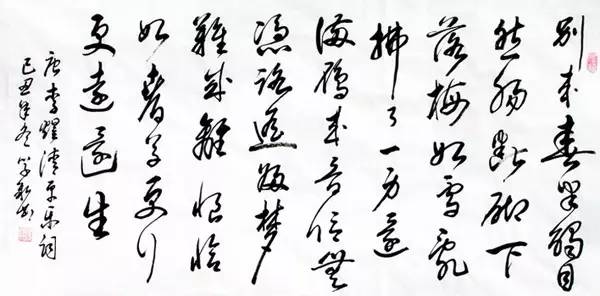 别来春半觸目
愁腸斷砌下
落梅如雪亂
拂了一身還
滿雁来音信無
憑路遥歸夢
難成離恨恰
如春草更行
更遠還生
唐李煜清平乐詞
己丑年冬